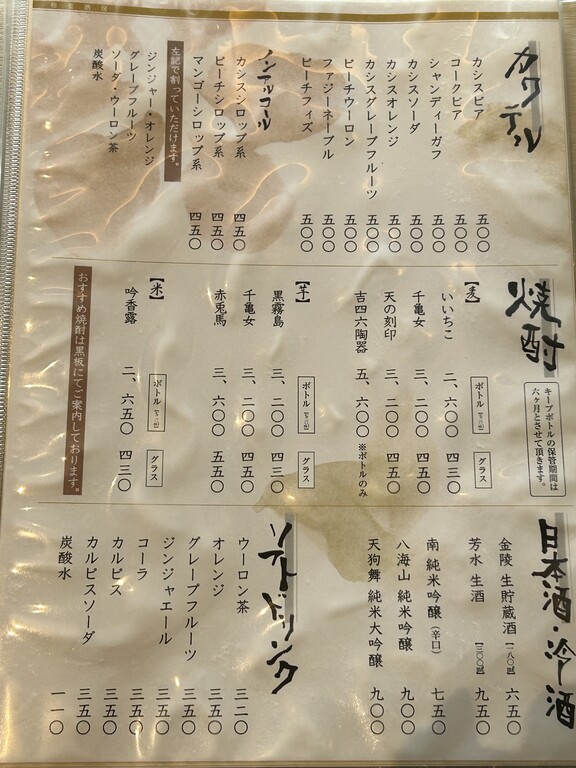 カクテル
カシスビア 五〇〇
コークビア 五〇〇
シャンディーガフ 五〇〇
カシスソーダ 五〇〇
カシスオレンジ 五〇〇
カシスグレープフルーツ 五〇〇
ピーチウーロン 五〇〇
ファジーネーブル 五〇〇
ピーチフィズ 五〇〇
ノンアルコール
カシスシロップ系 四五〇
ピーチシロップ系 四五〇
マンゴーシロップ系 四五〇
左記で割っていただけます。
ジンジャー・オレンジ
グレープフルーツ
ソーダ・ウーロン茶
炭酸水
焼酎
キープボトルの保管期間は
六ヶ月とさせて頂きます。
【麦】 ボトル グラス
いいちこ 二、六〇〇 四三〇
千亀女 三、二〇〇 四五〇
天の刻印 三、二〇〇 四五〇
吉四六陶器 五、〇〇〇 ※ボトルのみ
【芋】 ボトル グラス
黒霧島 三、二〇〇 四三〇
千亀女 三、二〇〇 四五〇
赤兎馬 三、六〇〇 五五〇
【米】 ボトル グラス
吟香露 二、六五〇 四三〇
おすすめ焼酎は黒板にてご案内しております。
日本酒・冷酒
金陵 生貯蔵酒 【一八〇㎖】 六五〇
芳水 生酒 【三〇〇㎖】 九五〇
南 純米吟醸(辛口) 七五〇
八海山 純米吟醸 九〇〇
天狗舞 純米大吟醸 九〇〇
ソフトドリンク
ウーロン茶 三二〇
オレンジ 三五〇
グレープフルーツ 三五〇
ジンジャエール 三五〇
コーラ 三五〇
カルピス 三五〇
カルピスソーダ 三五〇
炭酸水 一一〇